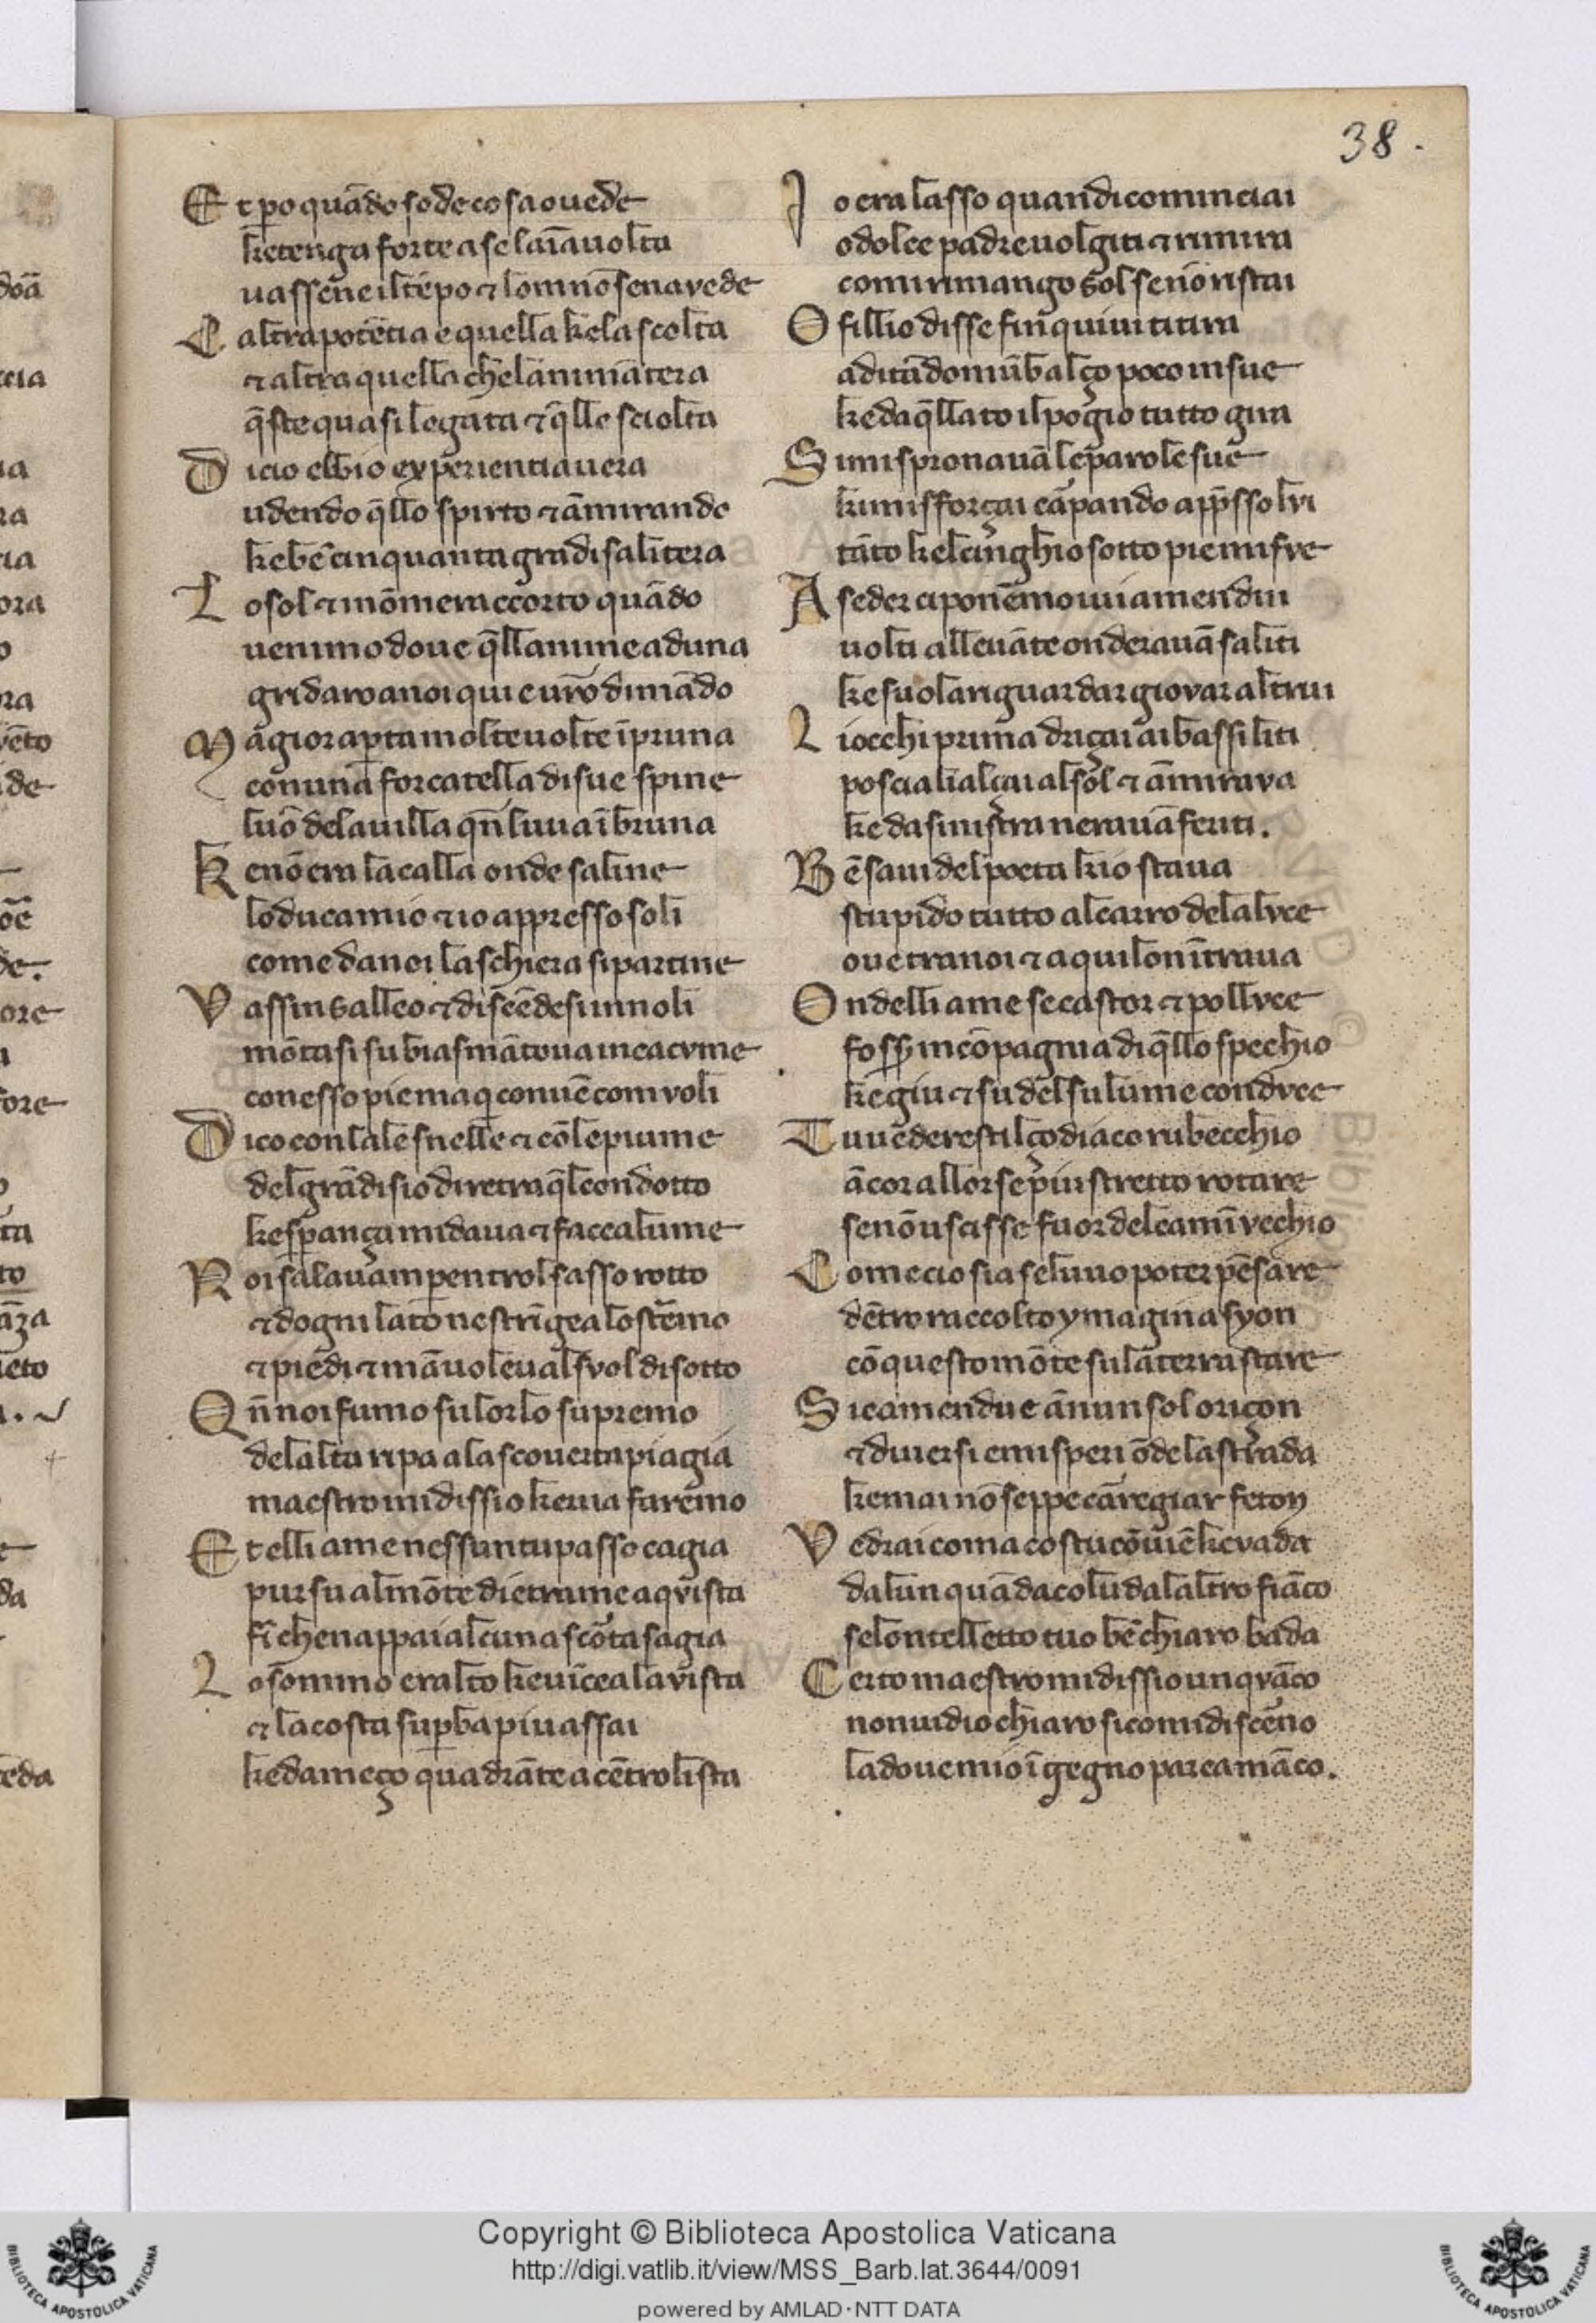 38.
Et ꝑo quãdo sode cosa o uede
ke tenga forte a se laĩa uolta
uassene il tẽpo ⁊ lom nõ sen avede
C altra potẽtia e quella ke lascolta
⁊ altra quella chel anima ĩtera
q̃ste quasi legata ⁊ q̃lle sciolta
D icio ebbio experientia uera
udendo q̃llo spirto ⁊ ãmirando
ke bẽ cinquanta gradi salitera
L o sol ⁊ io nõ mera ccorto quãdo
uenimo doue q̃llanime ad una
gridaro a noi qui e urõ dimãdo
M agior aꝑta molte uolte ĩpruna
con una forcatella di sue spine
luõ dela uilla qñ luua ĩbruna
K e nõ era la calla onde saline
lo duca mio ⁊ io appresso soli
come da noi la schiera si partine
V assin salleo ⁊ discẽdesi in noli
mõtasi su biasmãtoua in cacvme
con esso pie ma q̃ conuẽ com voli
D ico con lale snelle ⁊ cõ le piume
del grãdisio diretra q̃l condotto
ke sperança mi daua ⁊ facea lume
N oi salauam ꝑ entrol sasso rotto
⁊ dogni lato ne strĩgea lo stẽmo
⁊ piedi ⁊ mã uoleual svol di sotto
Q ñ noi fumo su lorlo supremo
de lalta ripa a la scouerta piagia
maestro mi dissio ke uia farẽmo
E t elli a me nessun tu passo cagia
pur su al mõte dietra me aqvista
fĩ chen appaia alcuna scõta sagia
L o sommo eralto ke uĩcea la vista
⁊ la costa suꝑba piu assai
ke da meço quadrãte a cẽtro lista
I o era lasso quandi cominciai
o dolce padre uolgiti ⁊ rimira
comi rimango sol se nõ ristai
O fillio disse fin quiui ti tira
aditãdomi ũ balço poco in sue
ke da q̃llato il pogio tutto gira
S i mi spronauã le parole sue
ki mi sforçai cãpando app̃sso lvi
tãto kel cinghio sotto pie mi fve
A seder ci ponẽmo iui amendui
uolti alleuãte onderauã saliti
ke suola riguardar giovar altrui
L i occhi prima driçai ai bassi liti
poscia li alçai al sol ⁊ ãmirava
ke da sinistra nerauã feriti.
B ẽ saui del poeta kio staua
stupido tutto al carro dela lvce
oue tra noi ⁊ aquilon ĩtraua
O ndelli a me se castor ⁊ pollvce
fosser in cõpagnia di q̃llo spechio
ke giu ⁊ su del su lume condvce
T u uẽderesti lçodiaco rubecchio
ãcor allorse piu stretto rotare
se nõ uscisse fuor del camĩ vechio
C ome cio sia sel uuo poter pẽsare
dẽtro raccolto ymagina syon
cõ questo mõte su la terra stare
S i camendue ãn un sol oriçon
⁊ diuersi emisperi õde la strada
ke mai nõ seppe carregiar feton
V edrai coma costu cõuiẽ ke vada
da lun quãda colu da laltro fiãco
se lontelletto tuo bẽ chiaro bada
C erto maestro mi dissio unqvãco
non uidio chiaro sicomi discẽno
la doue mio ĩgegno parea mãco.
Copyright © Biblioteca Apostolica Vaticana
http://digi.vatlib.it/view/MSS_Barb.lat.3644/0091
powered by AMLAD·NTT DATA
BIBLIOTECA APOSTOLICA VATICANA
BIBLIOTECA APOSTOLICA VATICANA